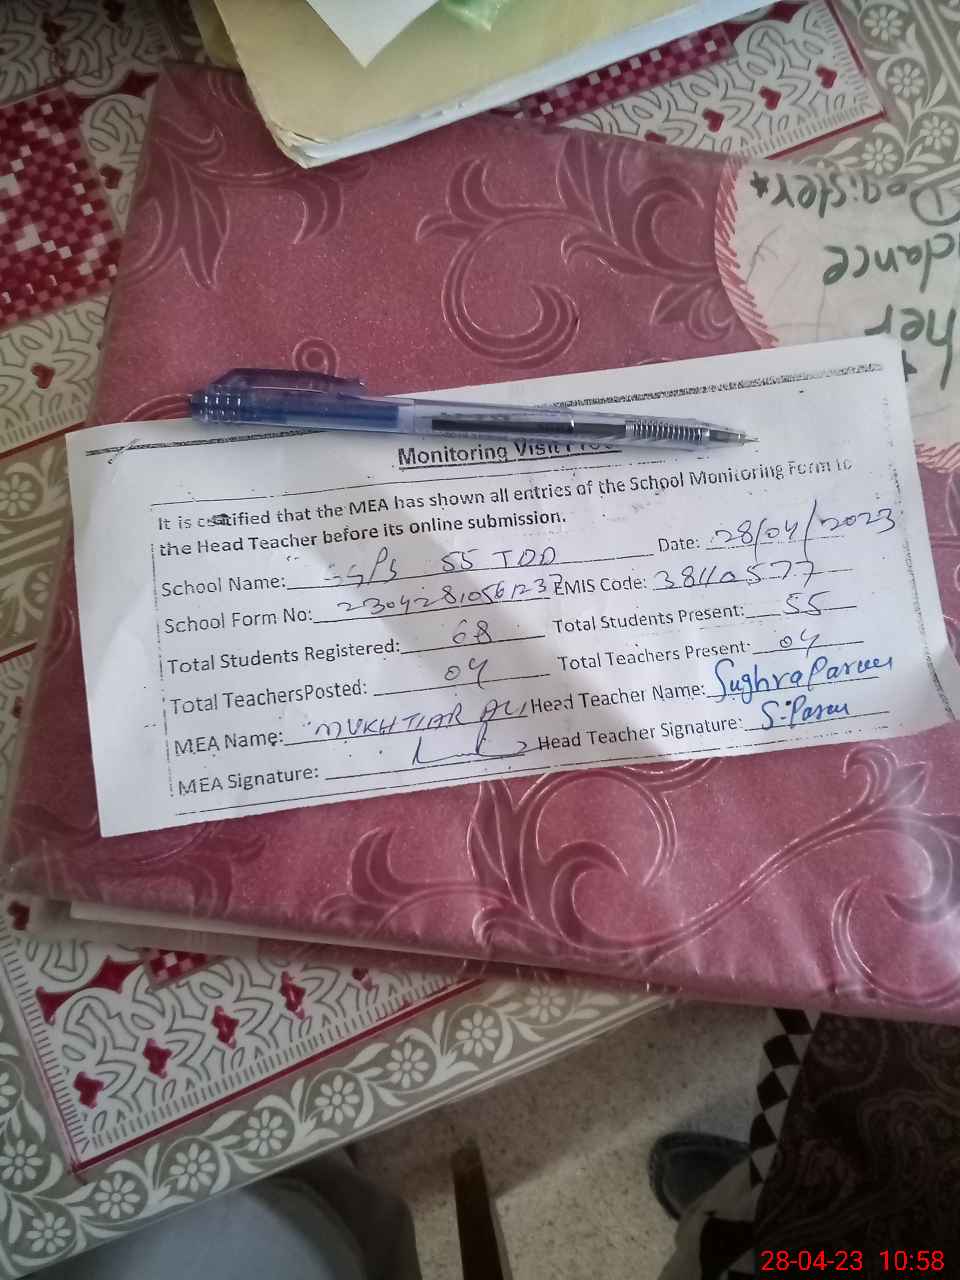 Register
dance
her
Monitoring Visit
It is certified that the MEA has shown all entries of the School Monitoring Form to
the Head Teacher before its online submission.
School Name: GGPS 55 TDD Date: 28/04/2023
School Form No: 2304281056123 EMIS Code: 38110577
Total Students Registered: 68 Total Students Present: 55
Total TeachersPosted: 04 Total Teachers Present: 04
MEA Name: MUKHTIAR ALI Head Teacher Name: Sughra Parveen
MEA Signature: Head Teacher Signature: S.
28-04-23 10:58